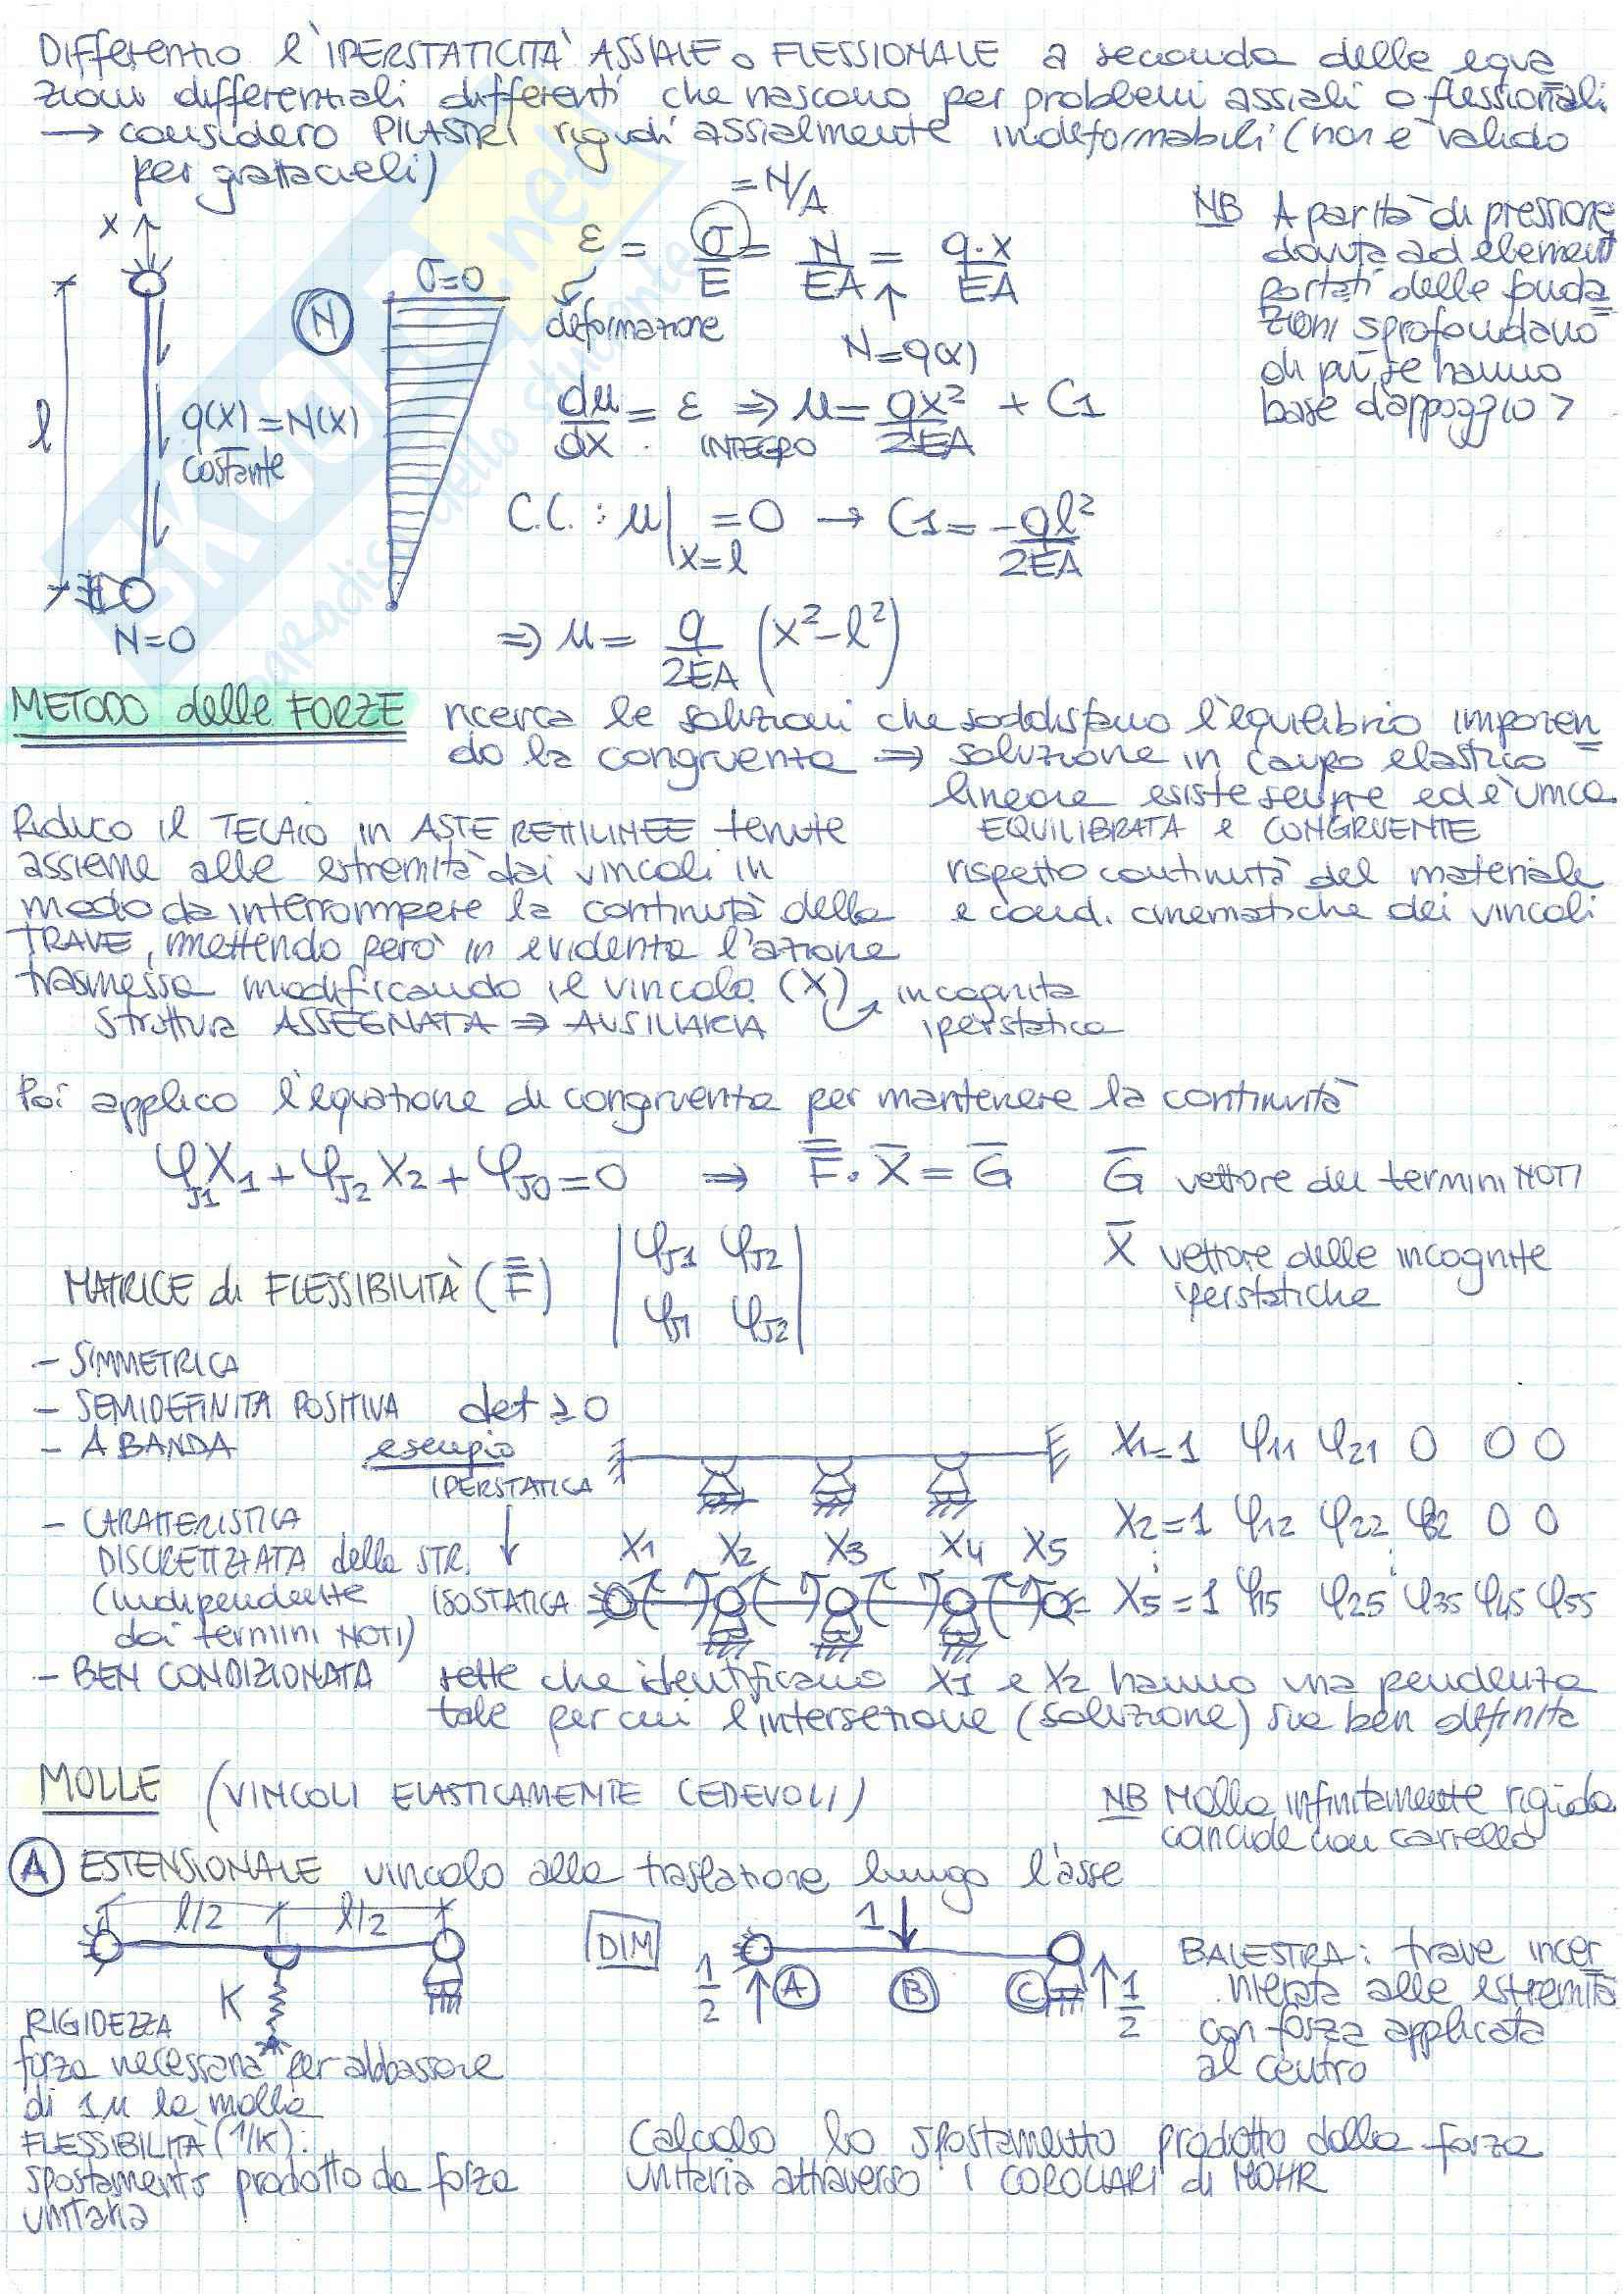 Differenzio l'IPERSTATICITÀ ASSIALE o FLESSIONALE a seconda delle equa
zioni differenziali differenti che nascono per problemi assiali o flessionali
→ considero PILASTRI rigidi assialmente indeformabili (non è valido
per grattacieli)
= N/A
x
ε = σ/E = N/EA = q·x/EA
σ=0
deformazione
N=q(x)
N
l
q(x)=N(x)
costante
du/dx = ε ⇒ u = qx²/2EA + C1
INTEGRO
C.C.: u|x=l = 0 → C1 = -ql²/2EA
N=0
⇒ u = q/2EA (x²-l²)
NB A parità di pressione
dovuta ad elementi
portati delle fonda
zioni sprofondano
di più se hanno
base d'appoggio >
METODO delle FORZE ricerca le soluzioni che soddisfano l'equilibrio imponen
do la congruenza ⇒ soluzione in campo elastico
lineare esiste sempre ed è unica
EQUILIBRATA e CONGRUENTE
rispetto continuità del materiale
e cond. cinematiche dei vincoli
Riduco il TELAIO in ASTE RETTILINEE tenute
assieme alle estremità dai vincoli in
modo da interrompere la continuità della
TRAVE, mettendo però in evidenza l'azione
trasmessa modificando il vincolo (X) incognita
iperstatica
struttura ASSEGNATA ⇒ AUSILIARIA
Poi applico l'equazione di congruenza per mantenere la continuità
φJ1X1 + φJ2X2 + φJ0 = 0 ⇒ F·X = G
G vettore dei termini NOTI
X vettore delle incognite
iperstatiche
MATRICE di FLESSIBILITÀ (F)
φJ1 φJ2
φJ1 φJ2
- SIMMETRICA
- SEMIDEFINITA POSITIVA det ≥ 0
- A BANDA
esempio
IPERSTATICA
X1=1 φ11 φ21 0 0 0
- CARATTERISTICA
DISCRETIZZATA della STR.
(indipendente
dai termini NOTI)
X1 X2 X3 X4 X5
ISOSTATICA
X2=1 φ12 φ22 φ32 0 0
X5=1 φ15 φ25 φ35 φ45 φ55
- BEN CONDIZIONATA rette che identificano X1 e X2 hanno una pendenza
tale per cui l'intersezione (soluzione) sia ben definita
MOLLE (VINCOLI ELASTICAMENTE CEDEVOLI)
NB Molla infinitamente rigida
coincide con carrello
A ESTENSIONALE vincolo alla traslazione lungo l'asse
l/2 l/2
K
DIM
1
1/2 A B C 1/2
BALESTRA: trave incer
nierata alle estremità
con forza applicata
al centro
RIGIDEZZA
forza necessaria per abbassare
di 1u la molla
FLESSIBILITÀ (1/K):
spostamento prodotto da forza
unitaria
Calcolo lo spostamento prodotto dalla forza
unitaria attraverso i COROLLARI di MOHR
SKUOLA.net
paradiso dello studente